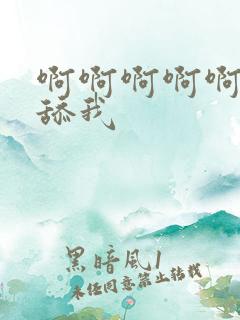 啊啊啊啊啊
舔我
黑暗风1
未经同意禁止转载